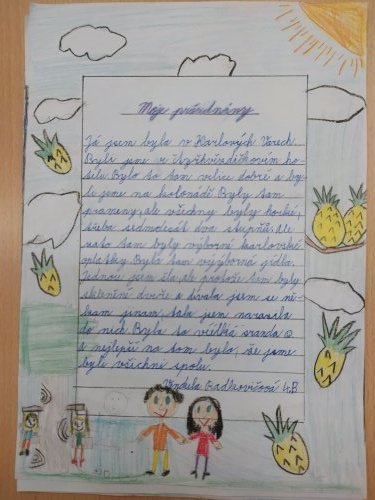 Moje prázdniny
Já jsem byla v Karlových Varech.
Byli jsme ve čtyřhvězdičkovím ho-
telu. Bylo to tam velice dobré a by-
le jsme na kolonádě. Byly tam
prameny, ale všechny byly horké,
třeba sedmdesát dva stupňů. Ale
zato tam byly výborné karlovské
oplatky. Bylo tam výborné jídlo.
Jednou jsem šla, ale protože tam byly
skleněné dveře a dívala jsem se ně-
kam jinam, tak jsem narazila
do nich. Byla to veliká sranda ☺
A nejlepší na tom bylo, že jsme
byli všichni spolu.
4.B